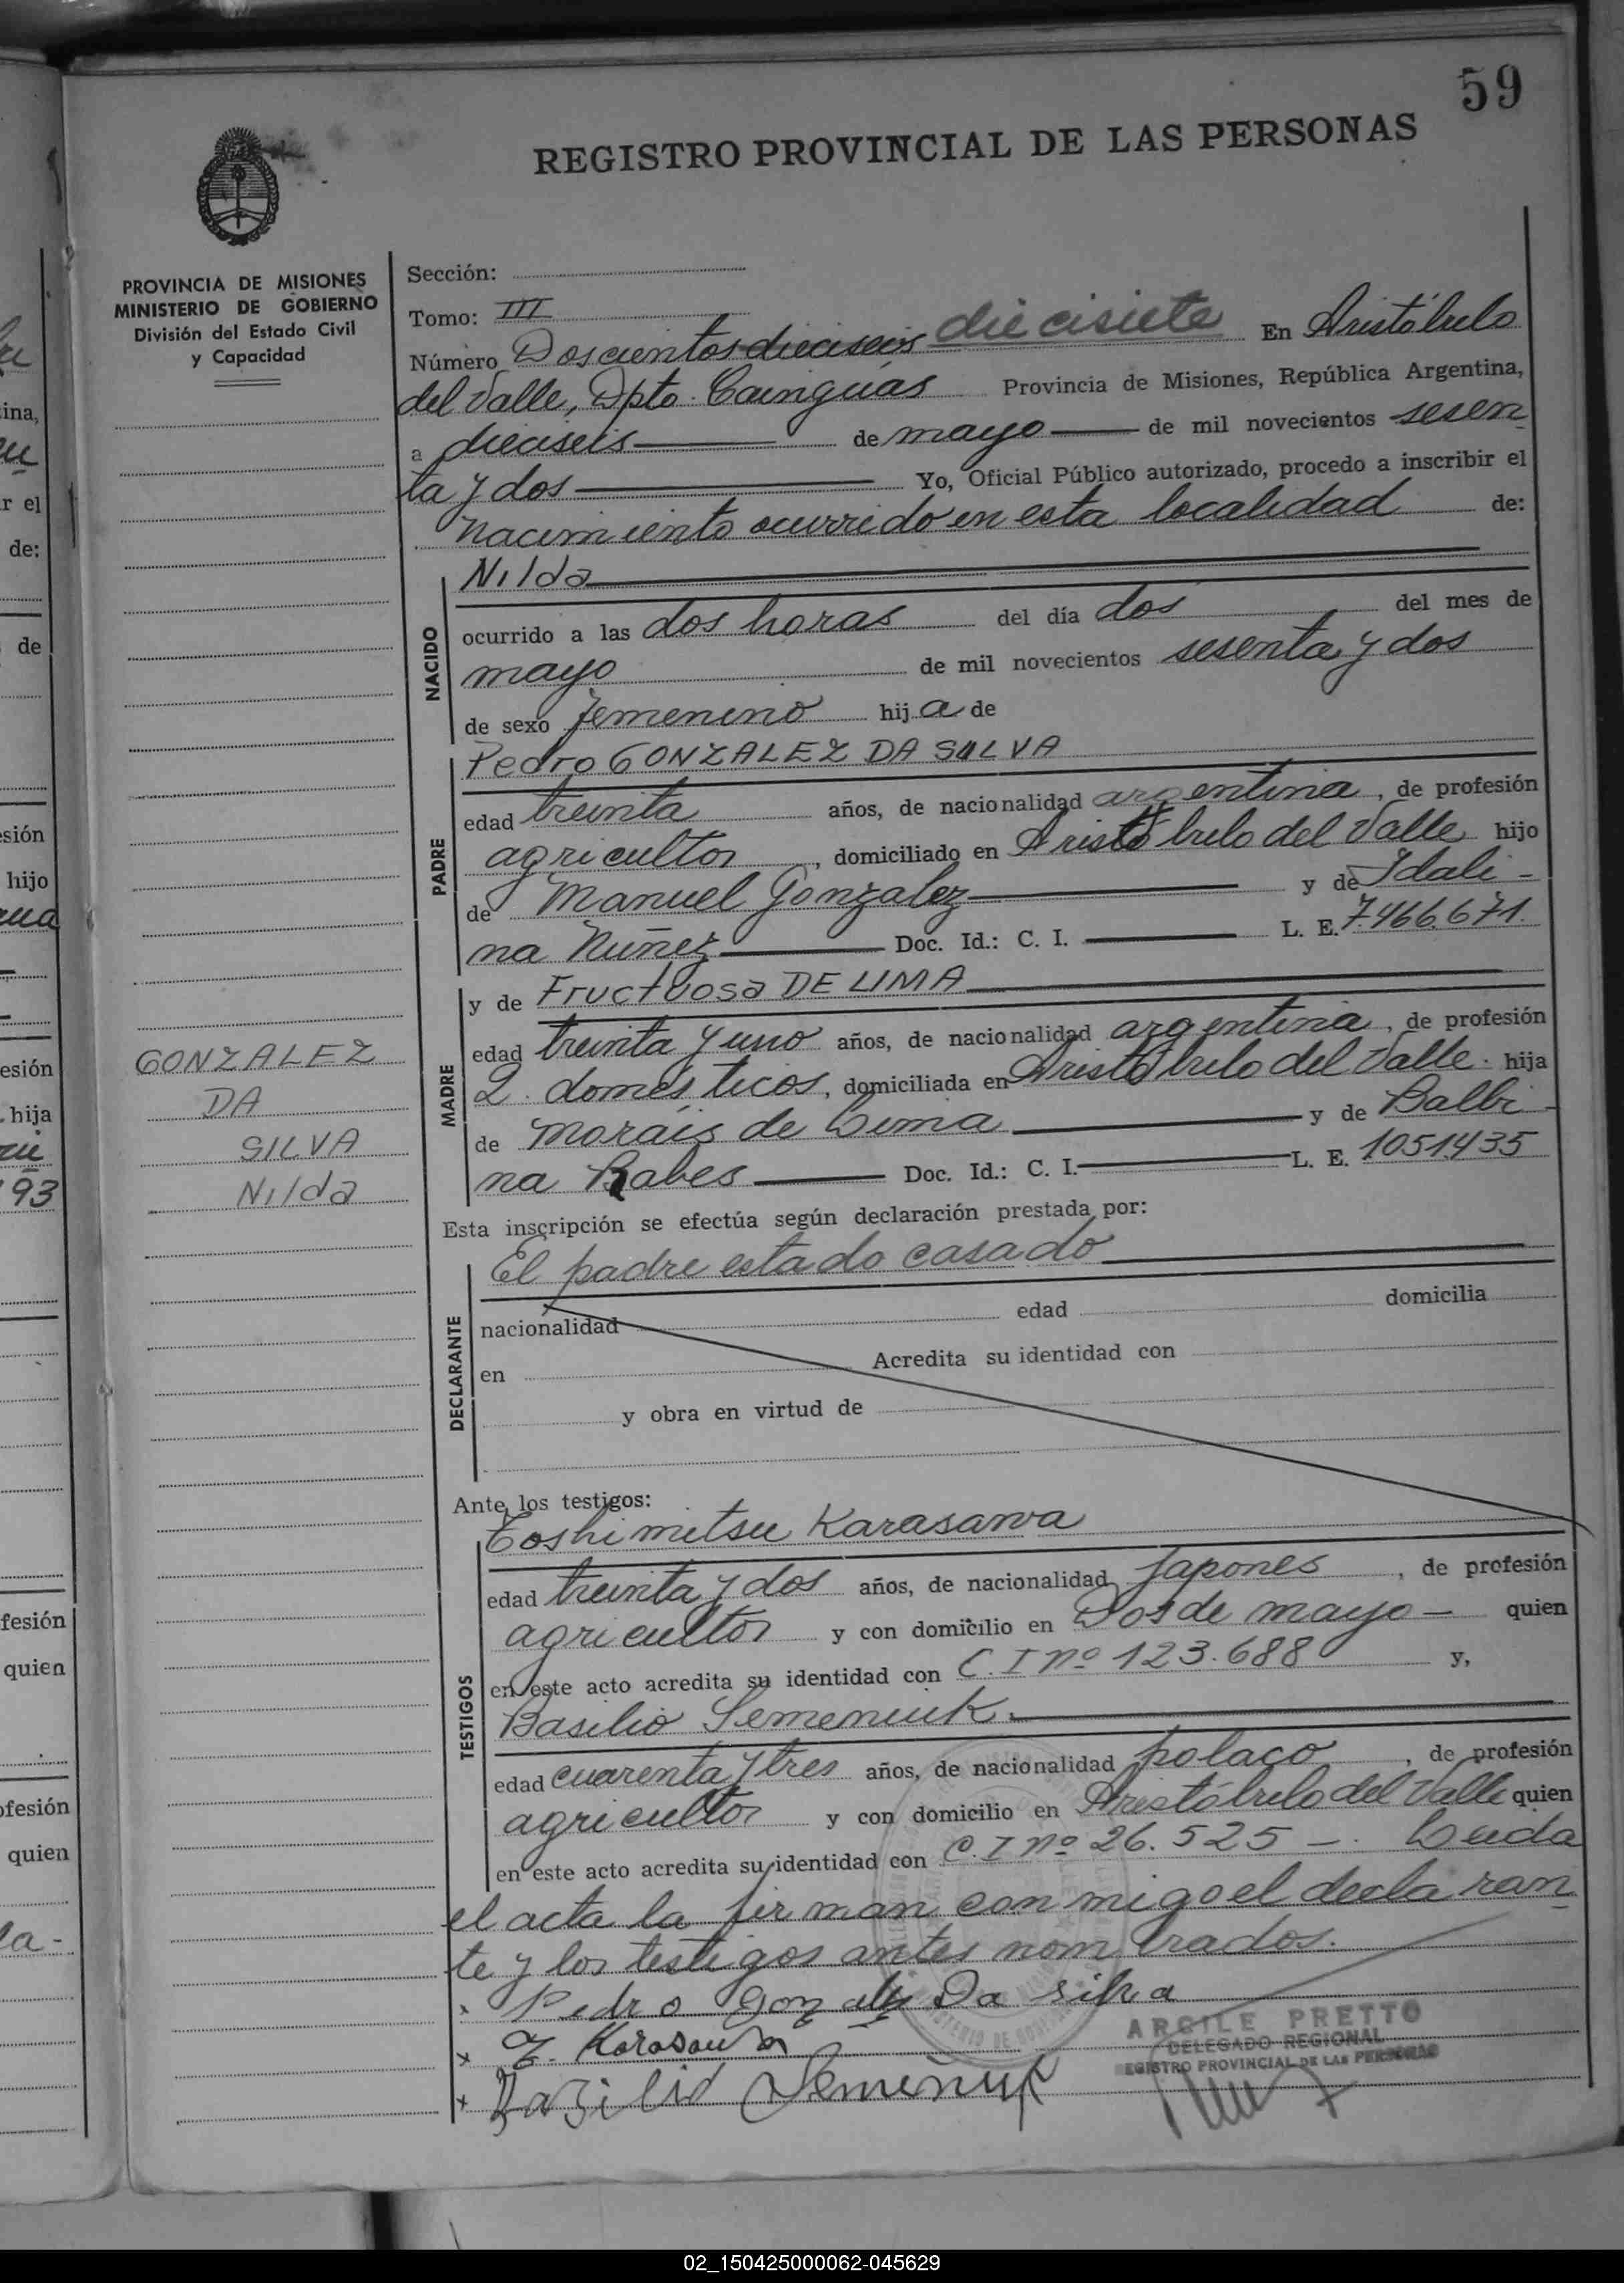 59
REGISTRO PROVINCIAL DE LAS PERSONAS
PROVINCIA DE MISIONES
MINISTERIO DE GOBIERNO
División del Estado Civil
y Capacidad
Sección:
Tomo: III
Número Doscientos dieciseis diecisiete En Aristóbulo
del Valle, Dpto. Cainguás Provincia de Misiones, República Argentina,
a dieciseis de mayo de mil novecientos sesen
ta y dos Yo, Oficial Público autorizado, procedo a inscribir el
nacimiento ocurrido en esta localidad de:
NACIDO
Nilda
ocurrido a las dos horas del día dos del mes de
mayo de mil novecientos sesenta y dos
de sexo femenino hija de
PADRE
Pedro GONZALEZ DA SILVA
edad treinta años, de nacionalidad argentina, de profesión
agricultor, domiciliado en Aristóbulo del Valle hijo
de Manuel Gonzalez y de Idali-
na Nuñez Doc. Id.: C. I. L. E. 7.466.671.
MADRE
y de Fructuosa DE LIMA
edad treinta y uno años, de nacionalidad argentina, de profesión
Q. domésticos, domiciliada en Aristóbulo del Valle hija
de Morais de Lima y de Balbi-
na Rabes Doc. Id.: C. I. L. E. 1051435
GONZALEZ
DA
SILVA
Nilda
Esta inscripción se efectúa según declaración prestada por:
DECLARANTE
El padre estado casado
nacionalidad edad domicilia
en Acredita su identidad con
y obra en virtud de
Ante los testigos:
TESTIGOS
Toshimitsu Karasawa
edad treinta y dos años, de nacionalidad Japones, de profesión
agricultor y con domicilio en Dos de mayo - quien
en este acto acredita su identidad con C. I nº 123.688 y,
Basilio Semeniuk.
edad cuarenta y tres años, de nacionalidad polaco, de profesión
agricultor y con domicilio en Aristóbulo del Valle quien
en este acto acredita su identidad con C. I nº 26.525 -. Leida
el acta la firman conmigo el declaran
te y los testigos antes nombrados.
x Pedro Gonzalez Da silva
x T. Karasawa
x Basilio Semeniuk
ARGILE PRETTO
DELEGADO REGIONAL
REGISTRO PROVINCIAL DE LAS PERSONAS
02_150425000062-045629